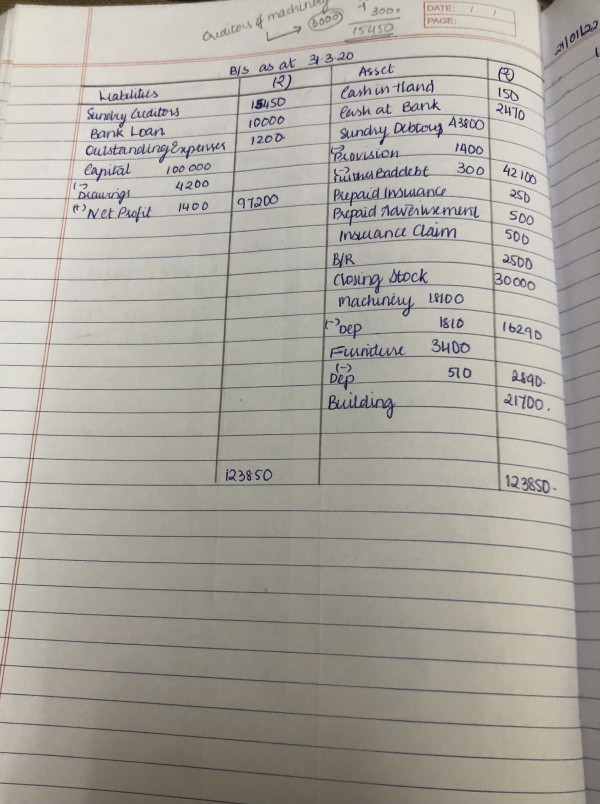 Creditors of machinery + 3000
(3000) 15450
DATE: / /
PAGE:
21/01/22
B/S as at 31.3.20
Liabilities (₹) Asset (₹)
Sundry Creditors 15450 Cash in Hand 150
Bank Loan 10000 Cash at Bank 2470
Outstanding Expenses 1200 Sundry Debtors 43800
Capital 100 000 (-) Provision 1400
(-) Drawings 4200 (-) Further Baddebt 300 42100
(+) Net Profit 1400 97200 Prepaid Insurance 250
Prepaid Advertisement 500
Insurance Claim 500
B/R 2500
Closing Stock 30000
Machinery 18100
(-) Dep 1810 16290
Furniture 3400
(-) Dep 510 2890.
Building 21700.
123850 123850.